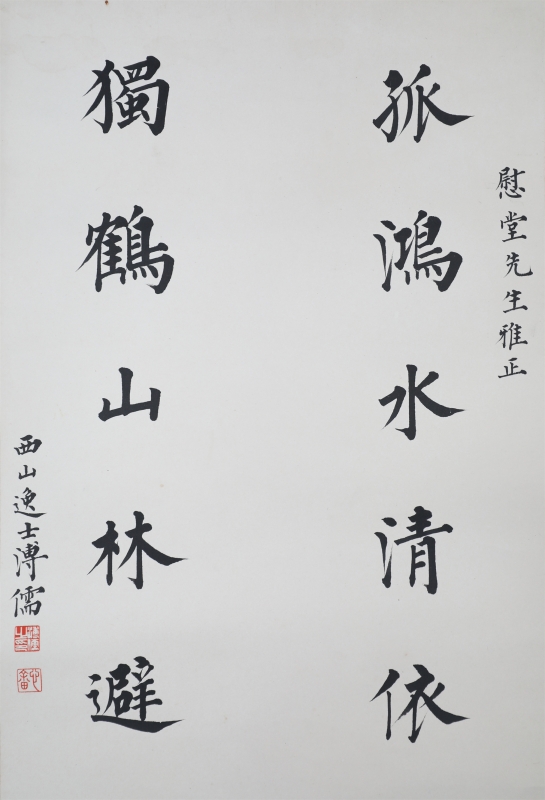 慰堂先生雅正
孤鴻水清依
獨鶴山林避
西山逸士溥儒